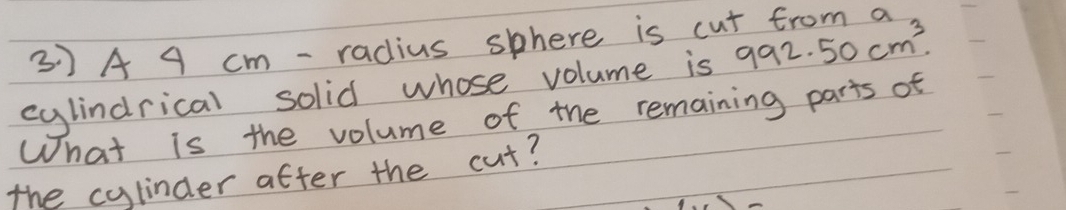 3.) A 4 cm - radius sphere is cut from a
cylindrical solid whose volume is 992.50 cm³.
What is the volume of the remaining parts of
the cylinder after the cut?